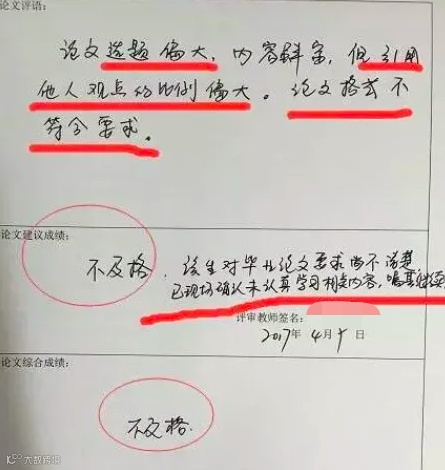 论文评语:
论文选题偏大,内容丰富,但引用
他人观点的比例偏大。论文格式不
符合要求。
论文建议成绩:
不及格.该生对毕业论文要求尚不清楚
已现场确认未认真学习相关内容,嘱其继续
评审教师签名:
2017年4月 日
论文综合成绩:
不及格.
大数跨境